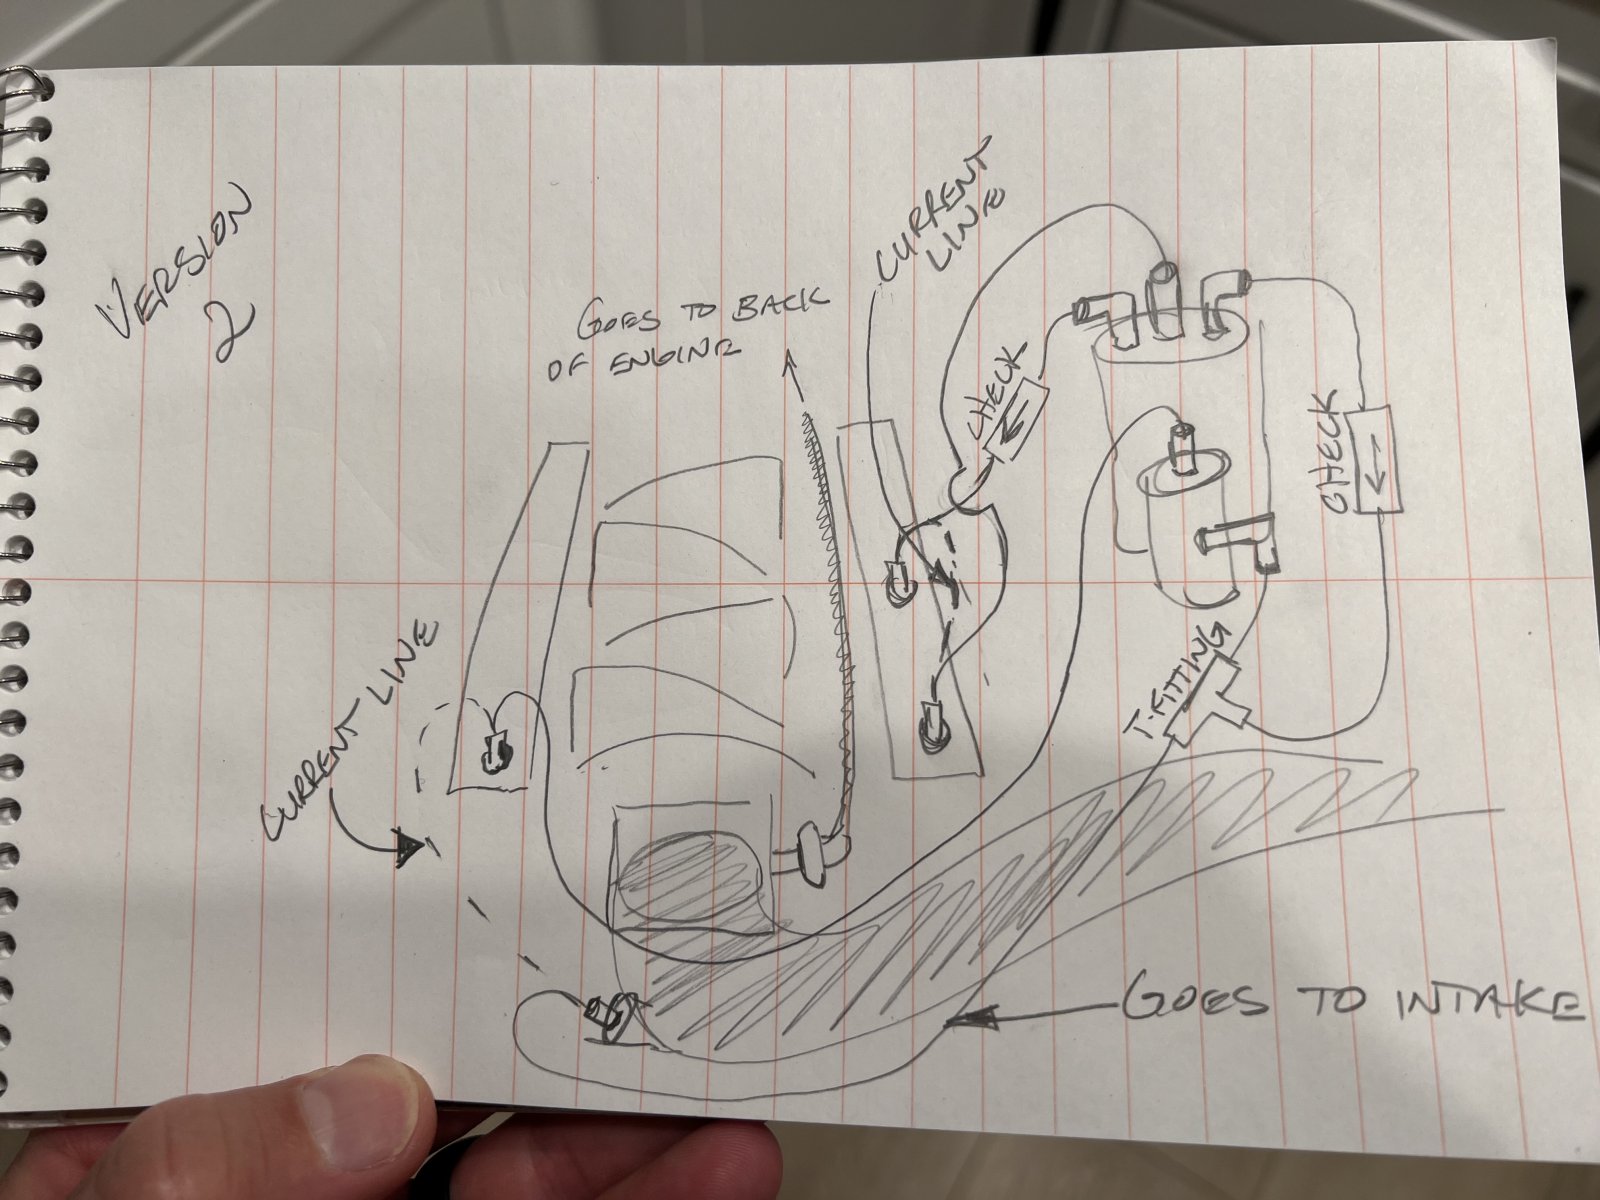 VERSION
2
GOES TO BACK
OF ENGINE
CURRENT
LINE
CHECK
CHECK
CURRENT LINE
T-FITTING
GOES TO INTAKE